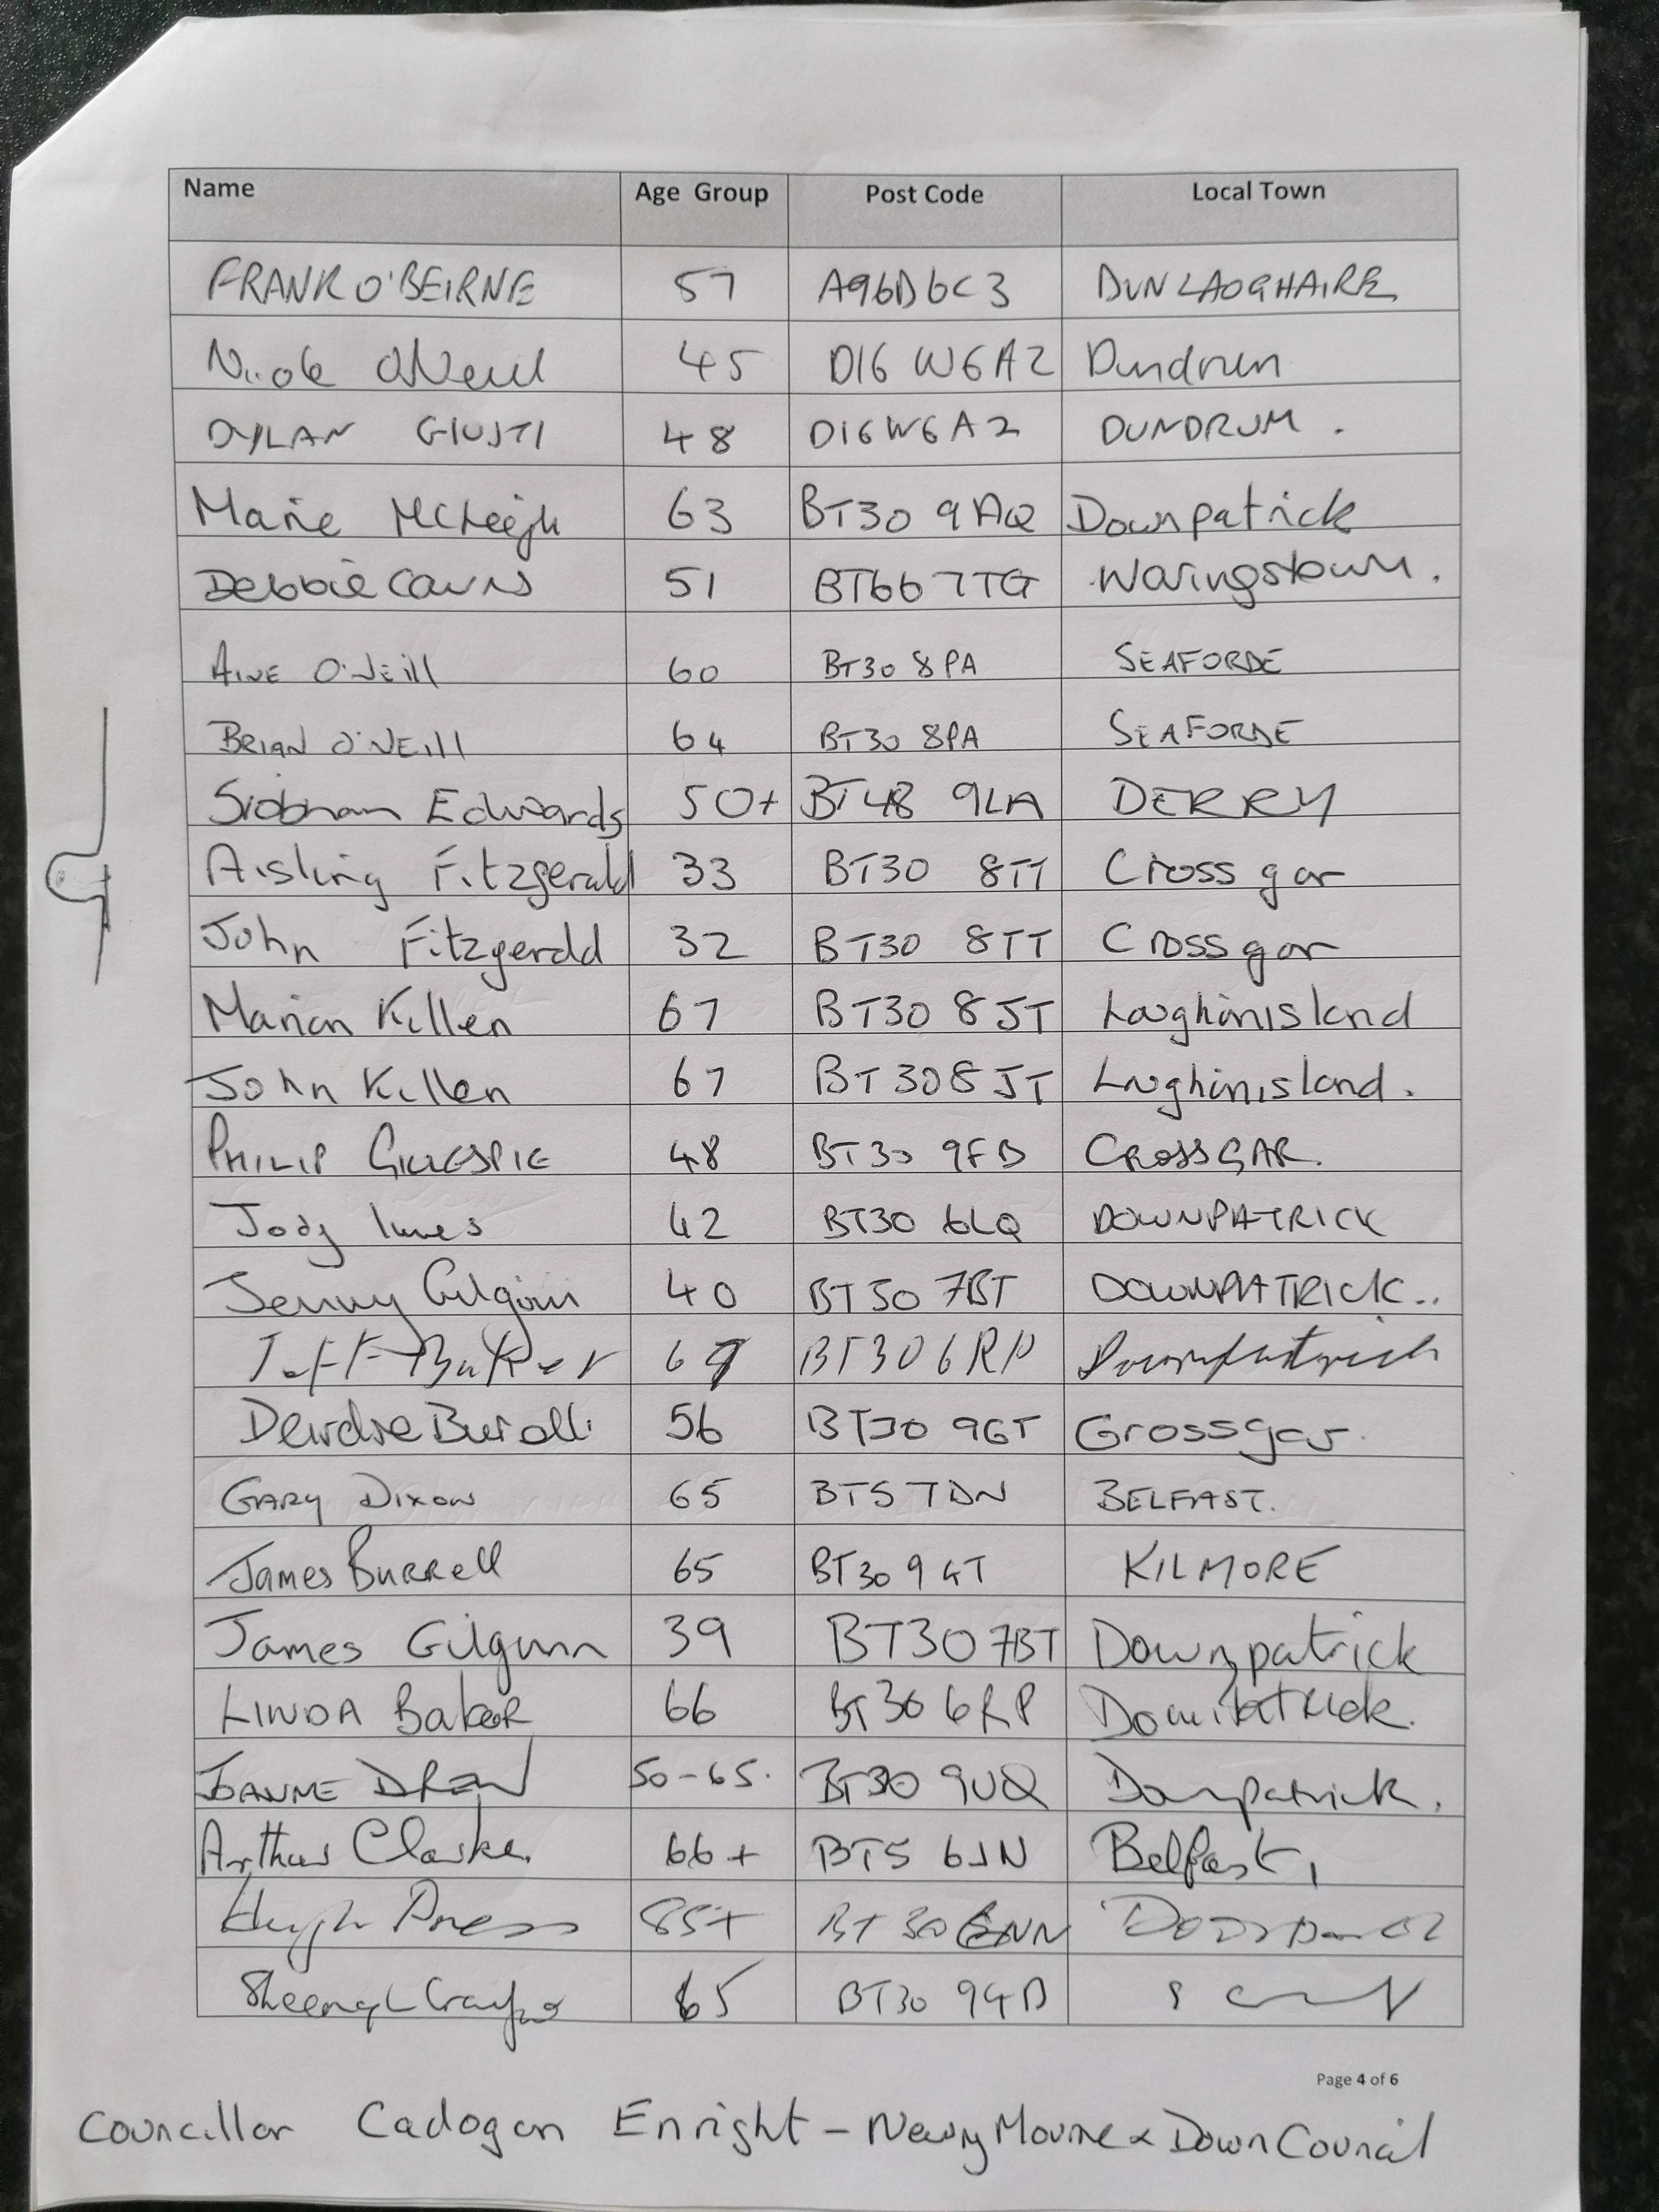 Name Age Group Post Code Local Town
FRANK O'BEIRNE 57 A96D6C3 DUNLAOGHAIRE
Nicole O'Neill 45 D16 W6A2 Dundrum
DYLAN GIUSTI 48 D16W6A2 DUNDRUM.
Marie 63 BT30 9AQ Downpatrick
Debbie Cairns 51 BT66 7TG Waringstown.
AINE O'NEill 60 BT30 8PA SEAFORDE
BRIAN O'NEIll 64 BT30 8PA SEAFORDE
Siobhan Edwards 50+ BT48 9LA DERRY
Aisling Fitzgerald 33 BT30 8TT Crossgar
John Fitzgerald 32 BT30 8TT Crossgar
Marion Killen 67 BT30 8JT Loughinisland
John Killen 67 BT30 8JT Loughinisland.
PHILIP GILLESPIE 48 BT30 9FD CROSSGAR.
Jody Innes 42 BT30 6LQ DOWNPATRICK
Jenny Gilgunn 40 BT30 7BT DOWNPATRICK..
Jeff Baker BT30 6RP Downpatrick
Deirdre 56 BT30 9GT Crossgar.
GARY DIXON 65 BT5 7DN BELFAST.
James BURRell 65 BT30 9GT KILMORE
James Gilgunn 39 BT30 7BT Downpatrick
LINDA Baker 66 BT30 6RP
JOANNE DREW 50-65. BT30 9UQ Downpatrick.
Arthur Clarke. 66+ BT5 6JN Belfast,
Hugh Press 85+ BT30
65 BT30 9GD
Page 4 of 6
Councillor Cadogan Enright - Newry Mourne & Down Council